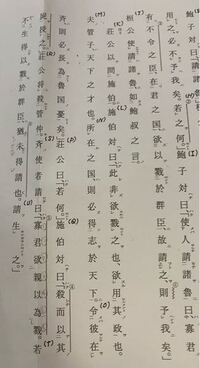 用之、必不予我矣。若之何。」鮑子対曰、「使人請諸魯曰、『寡君
有不令之臣、在君之国。欲以戮於群臣、故請之。』則予我矣。」
桓公使請諸魯、如鮑叔之言。
荘公以問施伯。施伯対曰、「此非欲戮之也、欲用其政也。
夫管子、天下之才也。所在之国、則必得志於天下。令彼在
斉、則必長為魯国憂矣。」荘公曰、「若何。」施伯対曰、「殺而以其
屍授之。」荘公将殺管仲。斉使者請曰、「寡君欲親以為戮。若
不生得以戮於群臣、猶未得請也。請生之。」